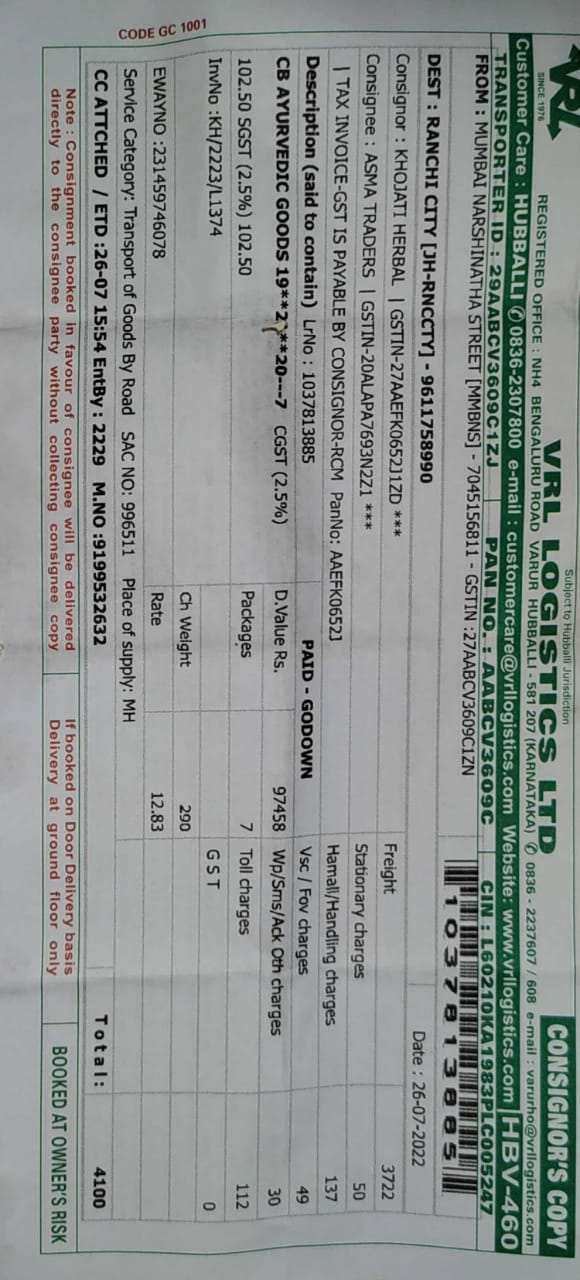 CODE GC 1001
VRL
SINCE 1976
Subject to Hubballi Jurisdiction
VRL LOGISTICS LTD
CONSIGNOR'S COPY
REGISTERED OFFICE : NH4 BENGALURU ROAD VARUR HUBBALLI - 581 207 (KARNATAKA) ✆ 0836 - 2237607 / 608 e-mail : varurho@vrllogistics.com
Customer Care : HUBBALLI ✆ 0836-2307800 e-mail : customercare@vrllogistics.com Website: www.vrllogistics.com HBV-460
TRANSPORTER ID : 29AABCV3609C1ZJ PAN NO. : AABCV3609C CIN : L60210KA1983PLC005247
FROM : MUMBAI NARSHINATHA STREET [MMBNS] - 7045156811 - GSTIN :27AABCV3609C1ZN
1037813885
DEST : RANCHI CITY [JH-RNCCTY] - 9611758990
Date : 26-07-2022
Consignor : KHOJATI HERBAL | GSTIN-27AAEFK0652J1ZD ***
Freight 3722
Consignee : ASMA TRADERS | GSTIN-20ALAPA7693N2Z1 ***
Stationary charges 50
| TAX INVOICE-GST IS PAYABLE BY CONSIGNOR-RCM PanNo: AAEFK0652J
Hamali/Handling charges 137
Description (said to contain) LrNo : 1037813885 PAID - GODOWN Vsc / Fov charges 49
CB AYURVEDIC GOODS 19**2)**20---7 CGST (2.5%) D.Value Rs. 97458 Wp/Sms/Ack Oth charges 30
102.50 SGST (2.5%) 102.50 Packages 7 Toll charges 112
InvNo :KH/2223/L1374 G S T 0
Ch Weight 290
EWAYNO :231459746078 Rate 12.83
Service Category: Transport of Goods By Road SAC NO: 996511 Place of supply: MH
CC ATTCHED / ETD :26-07 15:54 EntBy : 2229 M.NO :9199532632 Total: 4100
Note : Consignment booked in favour of consignee will be delivered
directly to the consignee party without collecting consignee copy
If booked on Door Delivery basis
Delivery at ground floor only
BOOKED AT OWNER'S RISK